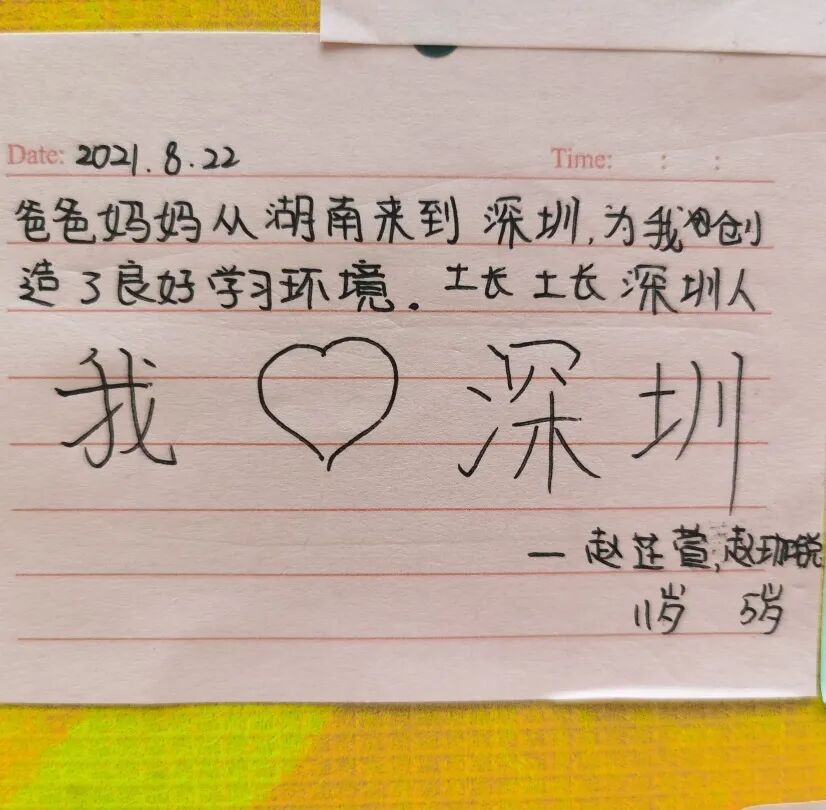 Date: 2021.8.22 Time: : :
爸爸妈妈从湖南来到深圳,为我创
造了良好学习环境。土长土长深圳人
我♡深圳
— 赵芷萱,赵
11岁 5岁